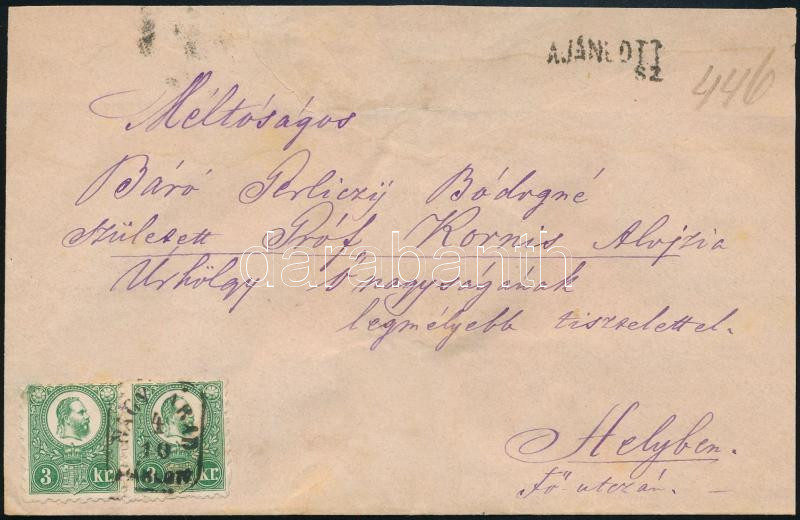 AJÁNLOTT
SZ
446
Méltóságos
Báró Perliczÿ Bódogné
született Gróf Kornis Alojzia
Úrhölgy ő nagyságának
legmélyebb tisztelettel.
Helyben.
Fő utczán.
darabanth
NAGYVÁRAD
4
10
3 kr.
3 kr.